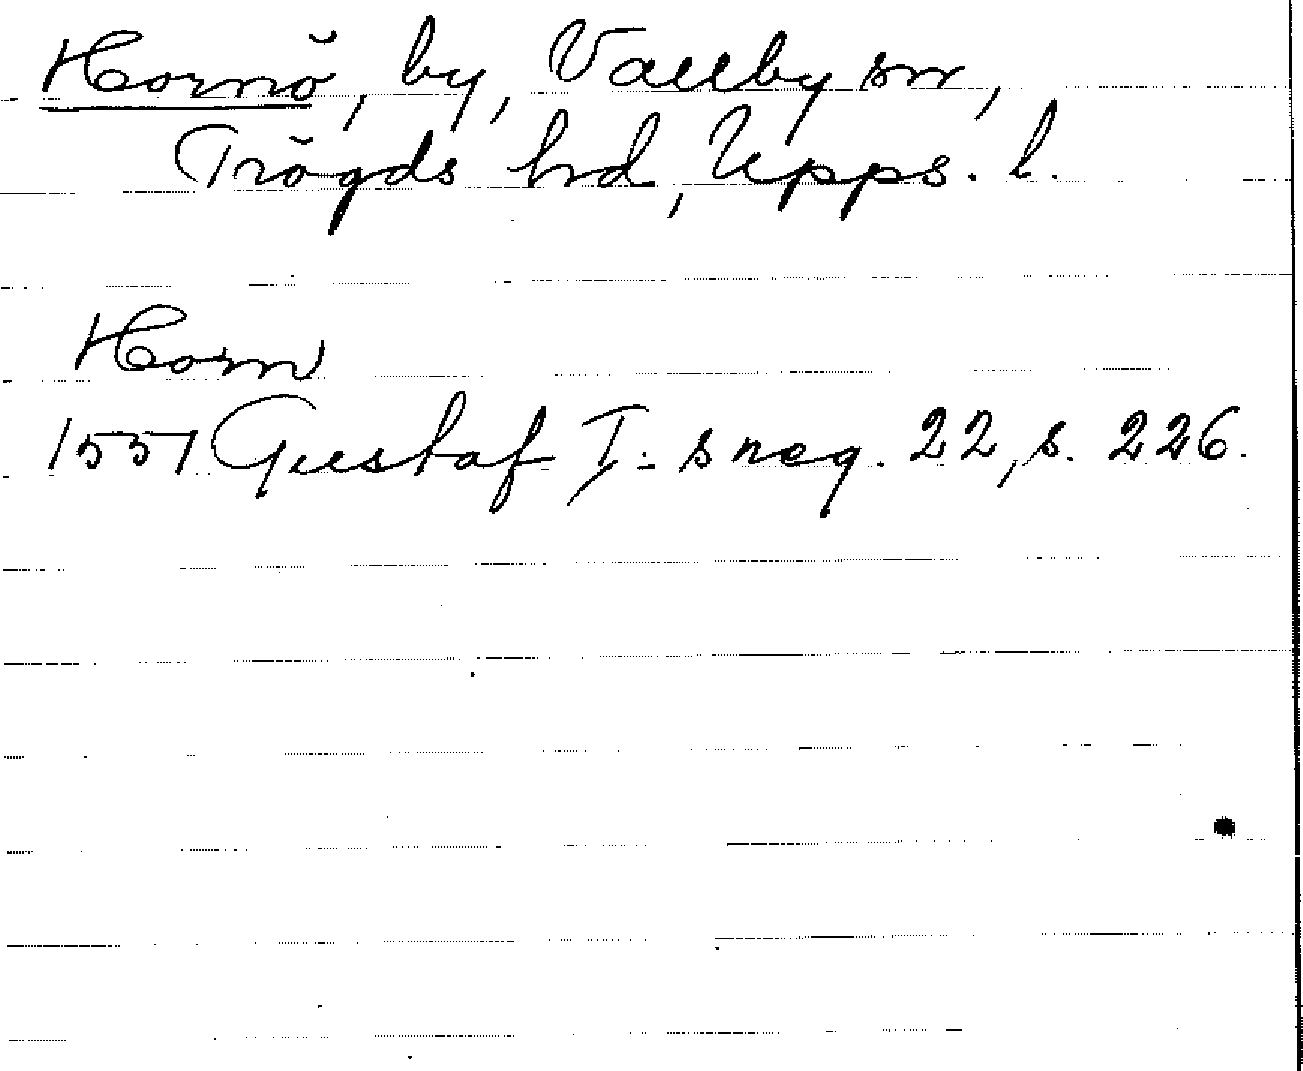 Hornö, by, Vallby sn,
Trögds hd, Upps. l.
Horn
1551 Gustaf I:s reg. 22, s. 226.